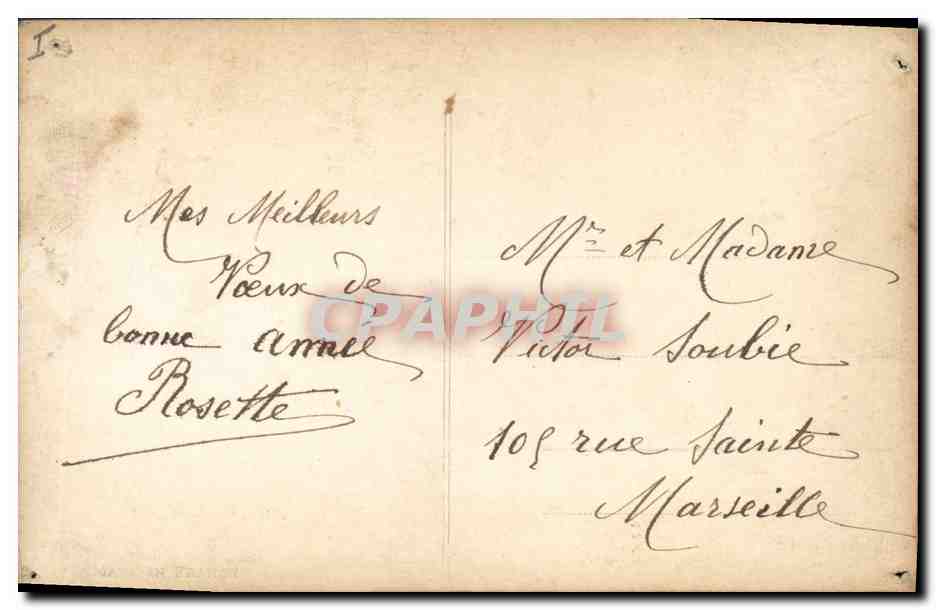 I
Mes Meilleurs
Vœux de
bonne année
Rosette
Mr et Madame
Victor Soubie
105 rue Sainte
Marseille
CPAPHIL
MADE IN FRANCE